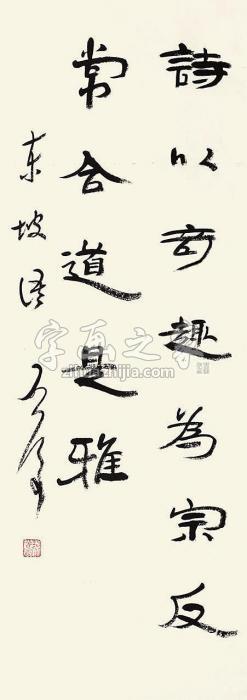 詩以奇趣為宗反
常合道是雅
东坡语
字画之家
zihuazhijia.com